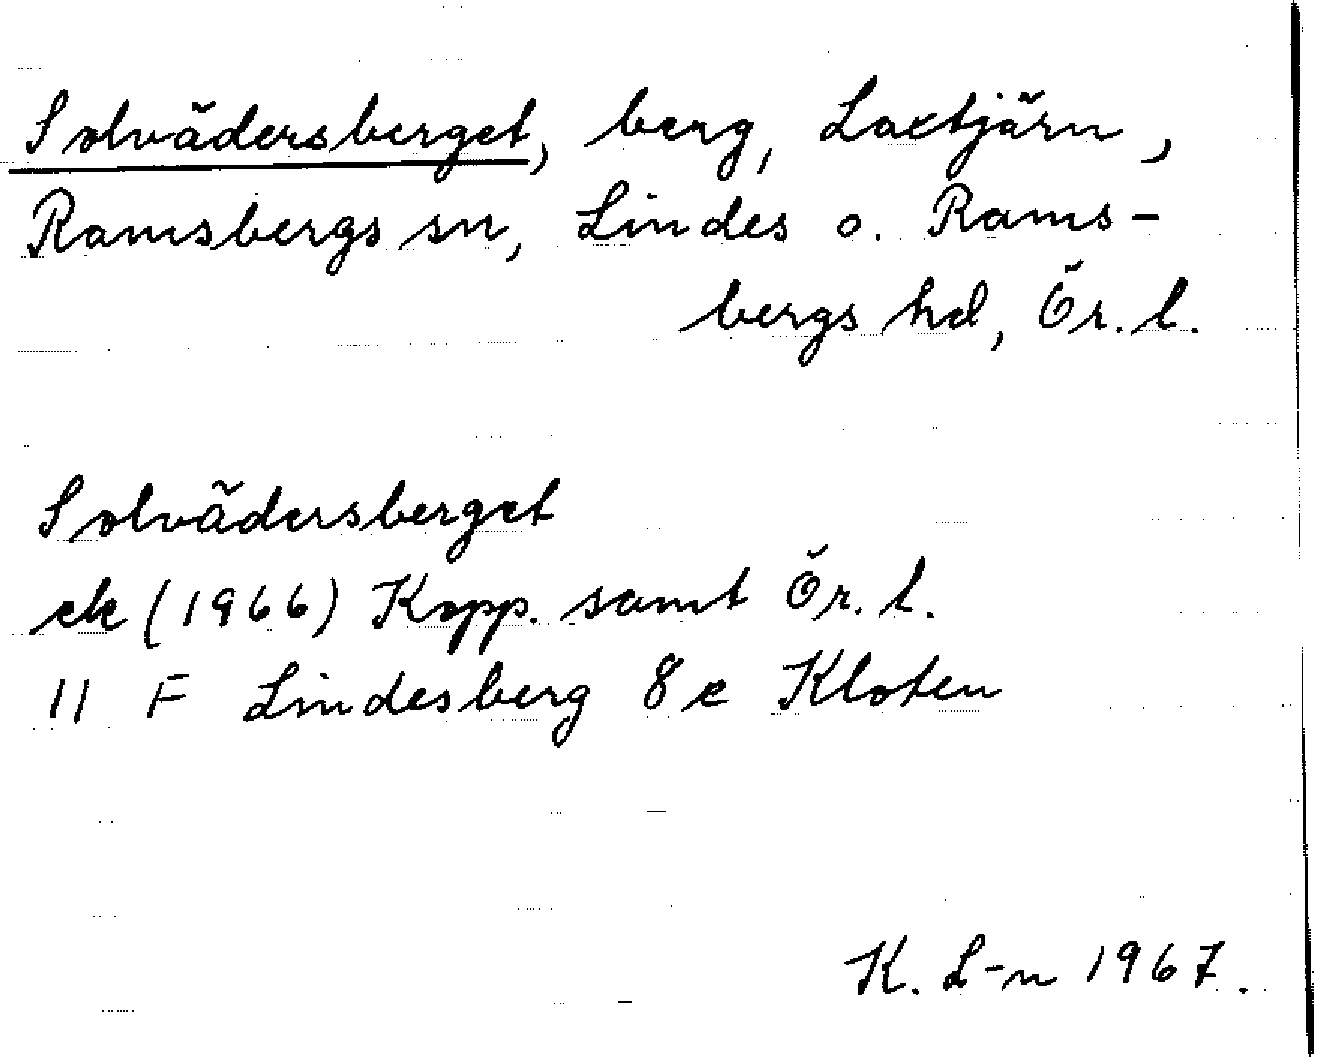 Solvädersberget, berg, Laxtjärn,
Ramsbergs sn, Lindes o. Rams-
bergs hd, Ör. l.
Solvädersberget
ek (1966) Kopp. samt Ör. l.
11 F Lindesberg 8 e Kloten
K. L-n 1967.